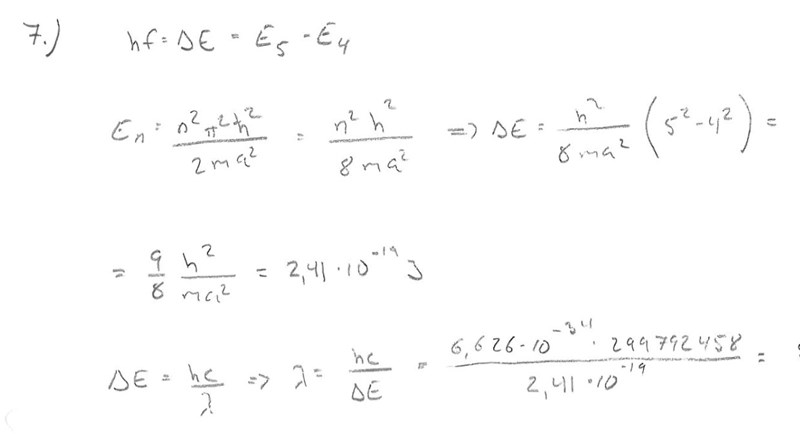 7.) hf = ΔE = E₅ - E₄
Eₙ = n²π²ħ²/2ma² = n²h²/8ma² => ΔE = h²/8ma² (5² - 4²) =
= 9/8 h²/ma² = 2,41 · 10⁻¹⁹ J
ΔE = hc/λ => λ = hc/ΔE = 6,626 · 10⁻³⁴ · 299792458/2,41 · 10⁻¹⁹ =